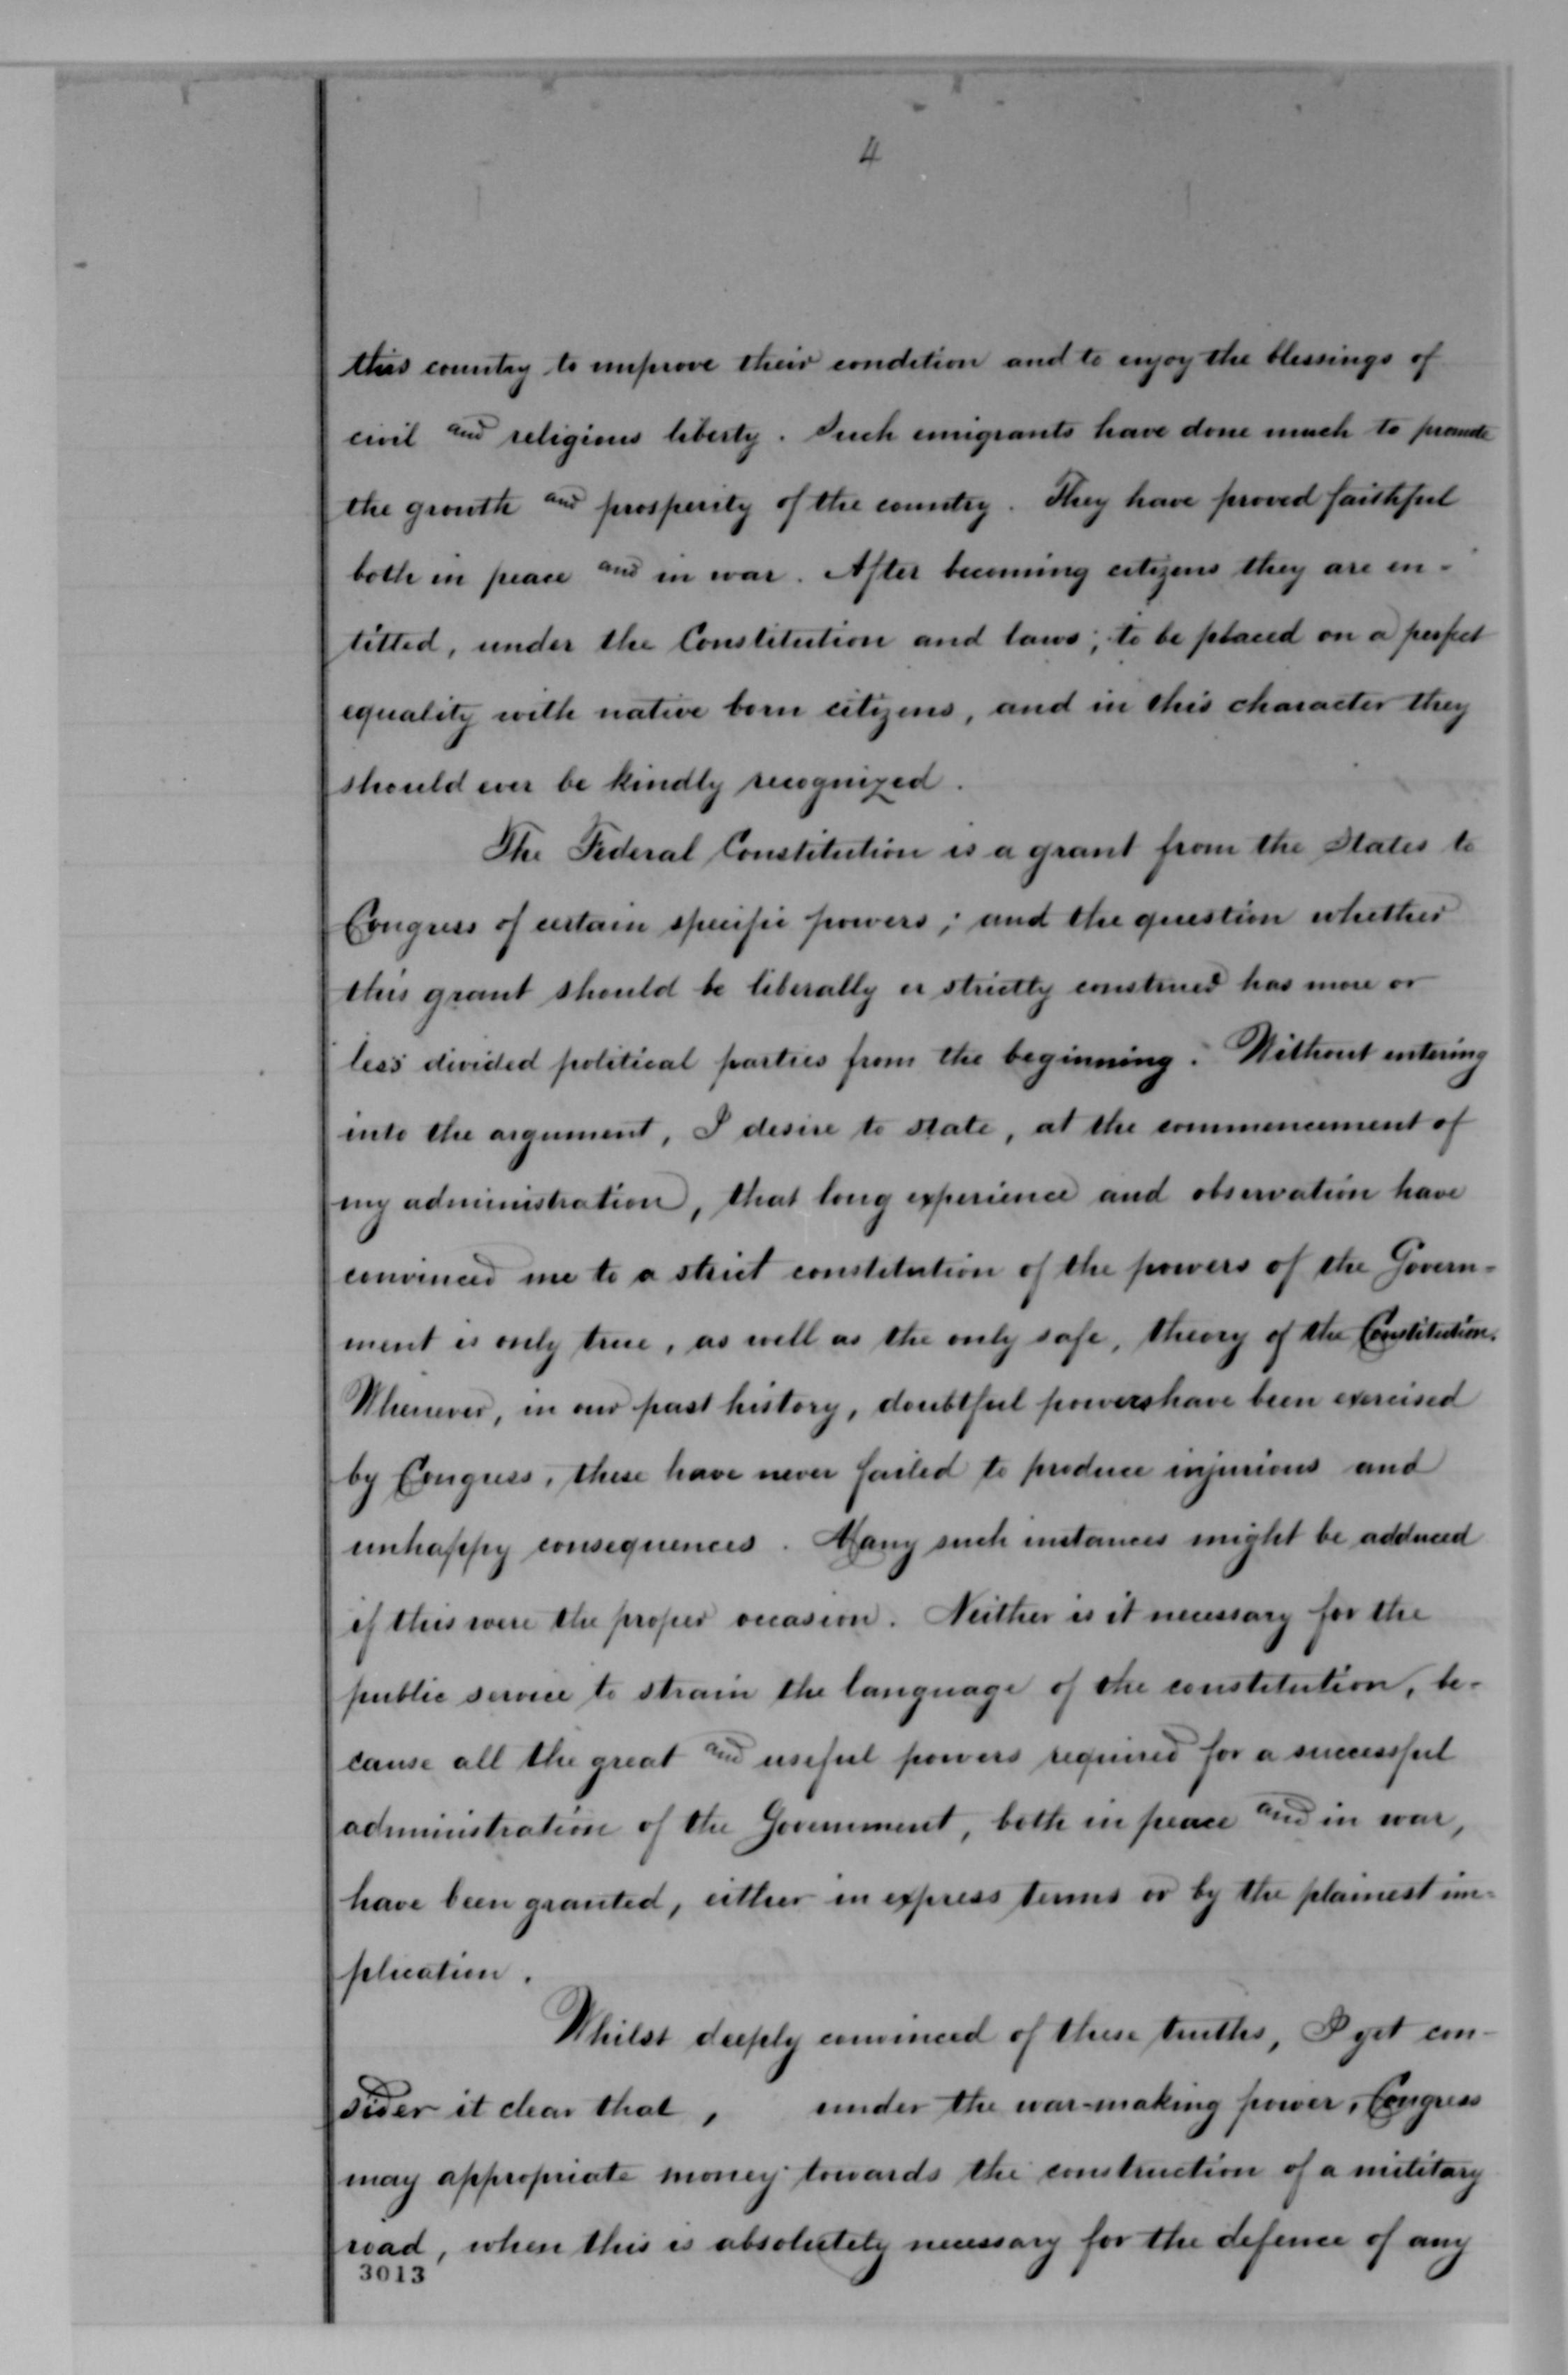 4
this country to improve their condition and to enjoy the blessings of
civil and religious liberty. Such emigrants have done much to promote
the growth and prosperity of the country. They have proved faithful
both in peace and in war. After becoming citizens they are en-
titled, under the Constitution and laws, to be placed on a perfect
equality with native born citizens, and in this character they
should ever be kindly recognized.
The Federal Constitution is a grant from the States to
Congress of certain specific powers; and the question whether
this grant should be liberally or strictly construed has more or
less divided political parties from the beginning. Without entering
into the argument, I desire to state, at the commencement of
my administration, that long experience and observation have
convinced me to a strict constitution of the powers of the Govern-
ment is only true, as well as the only safe, theory of the Constitution.
Whenever, in our past history, doubtful powers have been exercised
by Congress, these have never failed to produce injurious and
unhappy consequences. Many such instances might be adduced
if this were the proper occasion. Neither is it necessary for the
public service to strain the language of the constitution, be-
cause all the great and useful powers required for a successful
administration of the Government, both in peace and in war,
have been granted, either in express terms or by the plainest im-
plication.
Whilst deeply convinced of these truths, I yet con-
sider it clear that, under the war-making power, Congress
may appropriate money towards the construction of a military
road, when this is absolutely necessary for the defence of any
3013